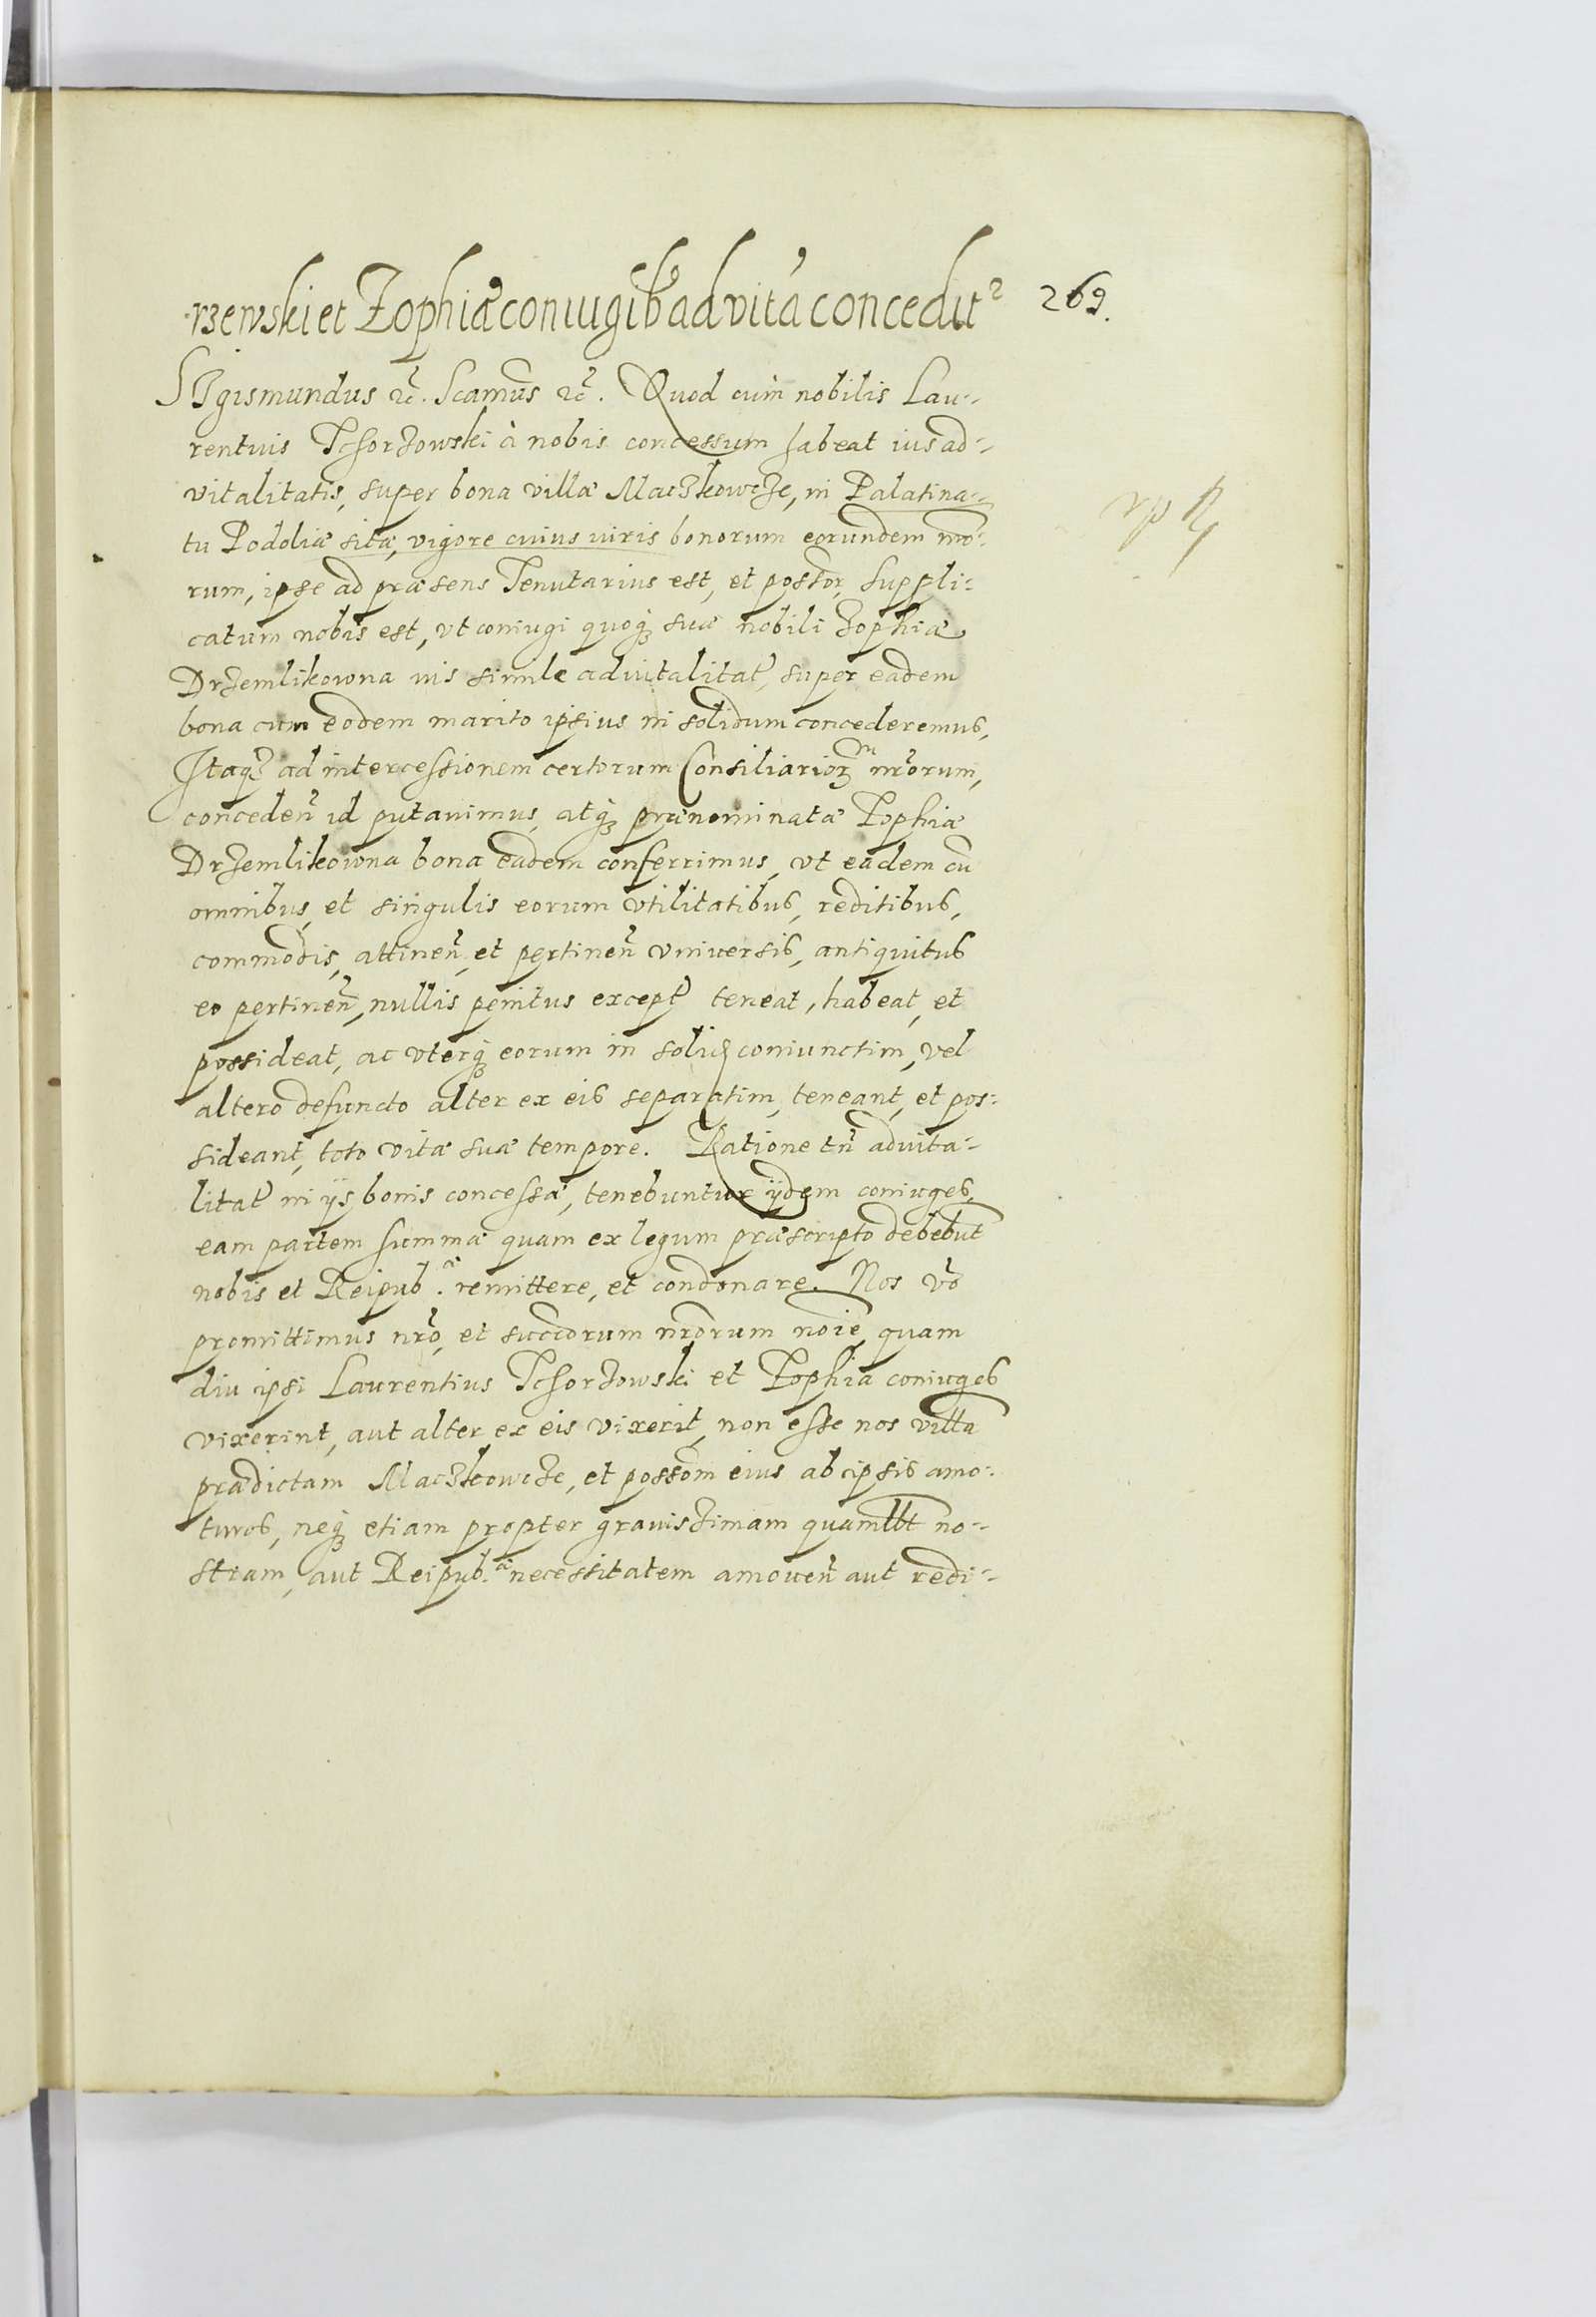 rzewski et Zophiæ coniugib9 ad vitã concedit2 269.
SIgismundus ꝛc̃. Scamus ꝛc̃. Quod cum nobilis Lau-
rentius Tchorzowski à nobis concessum habeat ius ad-
vitalitatis, super bona villæ Maczkowcze, in Palatina-
tu Podoliæ sitæ, vigore cuius iuris bonorum eorundem nr̃o-
rum, ipse ad præsens Tenutarius est, et possor, suppli-
catum nobis est, vt coniugi quoq; suæ nobili Zophiæ
Drzemlikowna ius simile advitalitat̃, super eadem
bona cum eodem marito ipsius in solidum concederemus,
Itaq; ad intercessionem certorum Consiliarioꝝ nr̃orum,
conceden̄ id putavimus, atq; prænominatæ Zophiæ
Drzemlikowna bona eadem conferrimus, vt eadem cũ
omnibus, et singulis eorum vtilitatibus, reditibus,
commodis, attinen̄, et pertinen̄ vniversis, antiquitus
eo pertinen̄, nullis penitus except̃ teneat, habeat, et
possideat, ac vterq; eorum in solid̃ coniunctim, vel
altero defuncto alter ex eis separatim, teneant, et pos-
sideant, toto vitæ suæ tempore. Ratione tn̄ advita-
litat̃ in ijs bonis concessæ, tenebuntur ijdem coniuges,
eam partem summæ quam ex legum præscripto debebũt
nobis et Reipub.æ remittere, et condonare. Nos vr̃o
promittimus nr̃o, et succorum nr̃orum noĩe, quam
diu ipsi Laurentius Tchorzowski et Zophia coniuges
vixerint, aut alter ex eis vixerit, non esse nos villã
prædictam Maczkowcze, et possom̃ eius ab ipsis amo-
turos, neq; etiam propter gravissimam quamlbt no-
stram, aut Reipub.æ necessitatem amoven̄ aut redi-